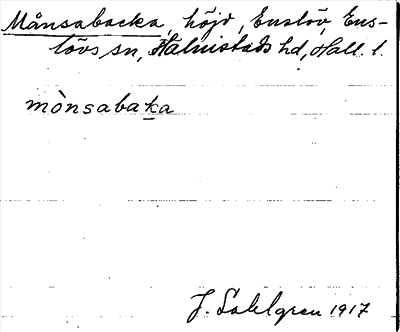 Månsabacka, höjd, Enslöv, Ens-
lövs sn, Halmstads hd, Hall. l.
mònsabaka
J. Sahlgren 1917